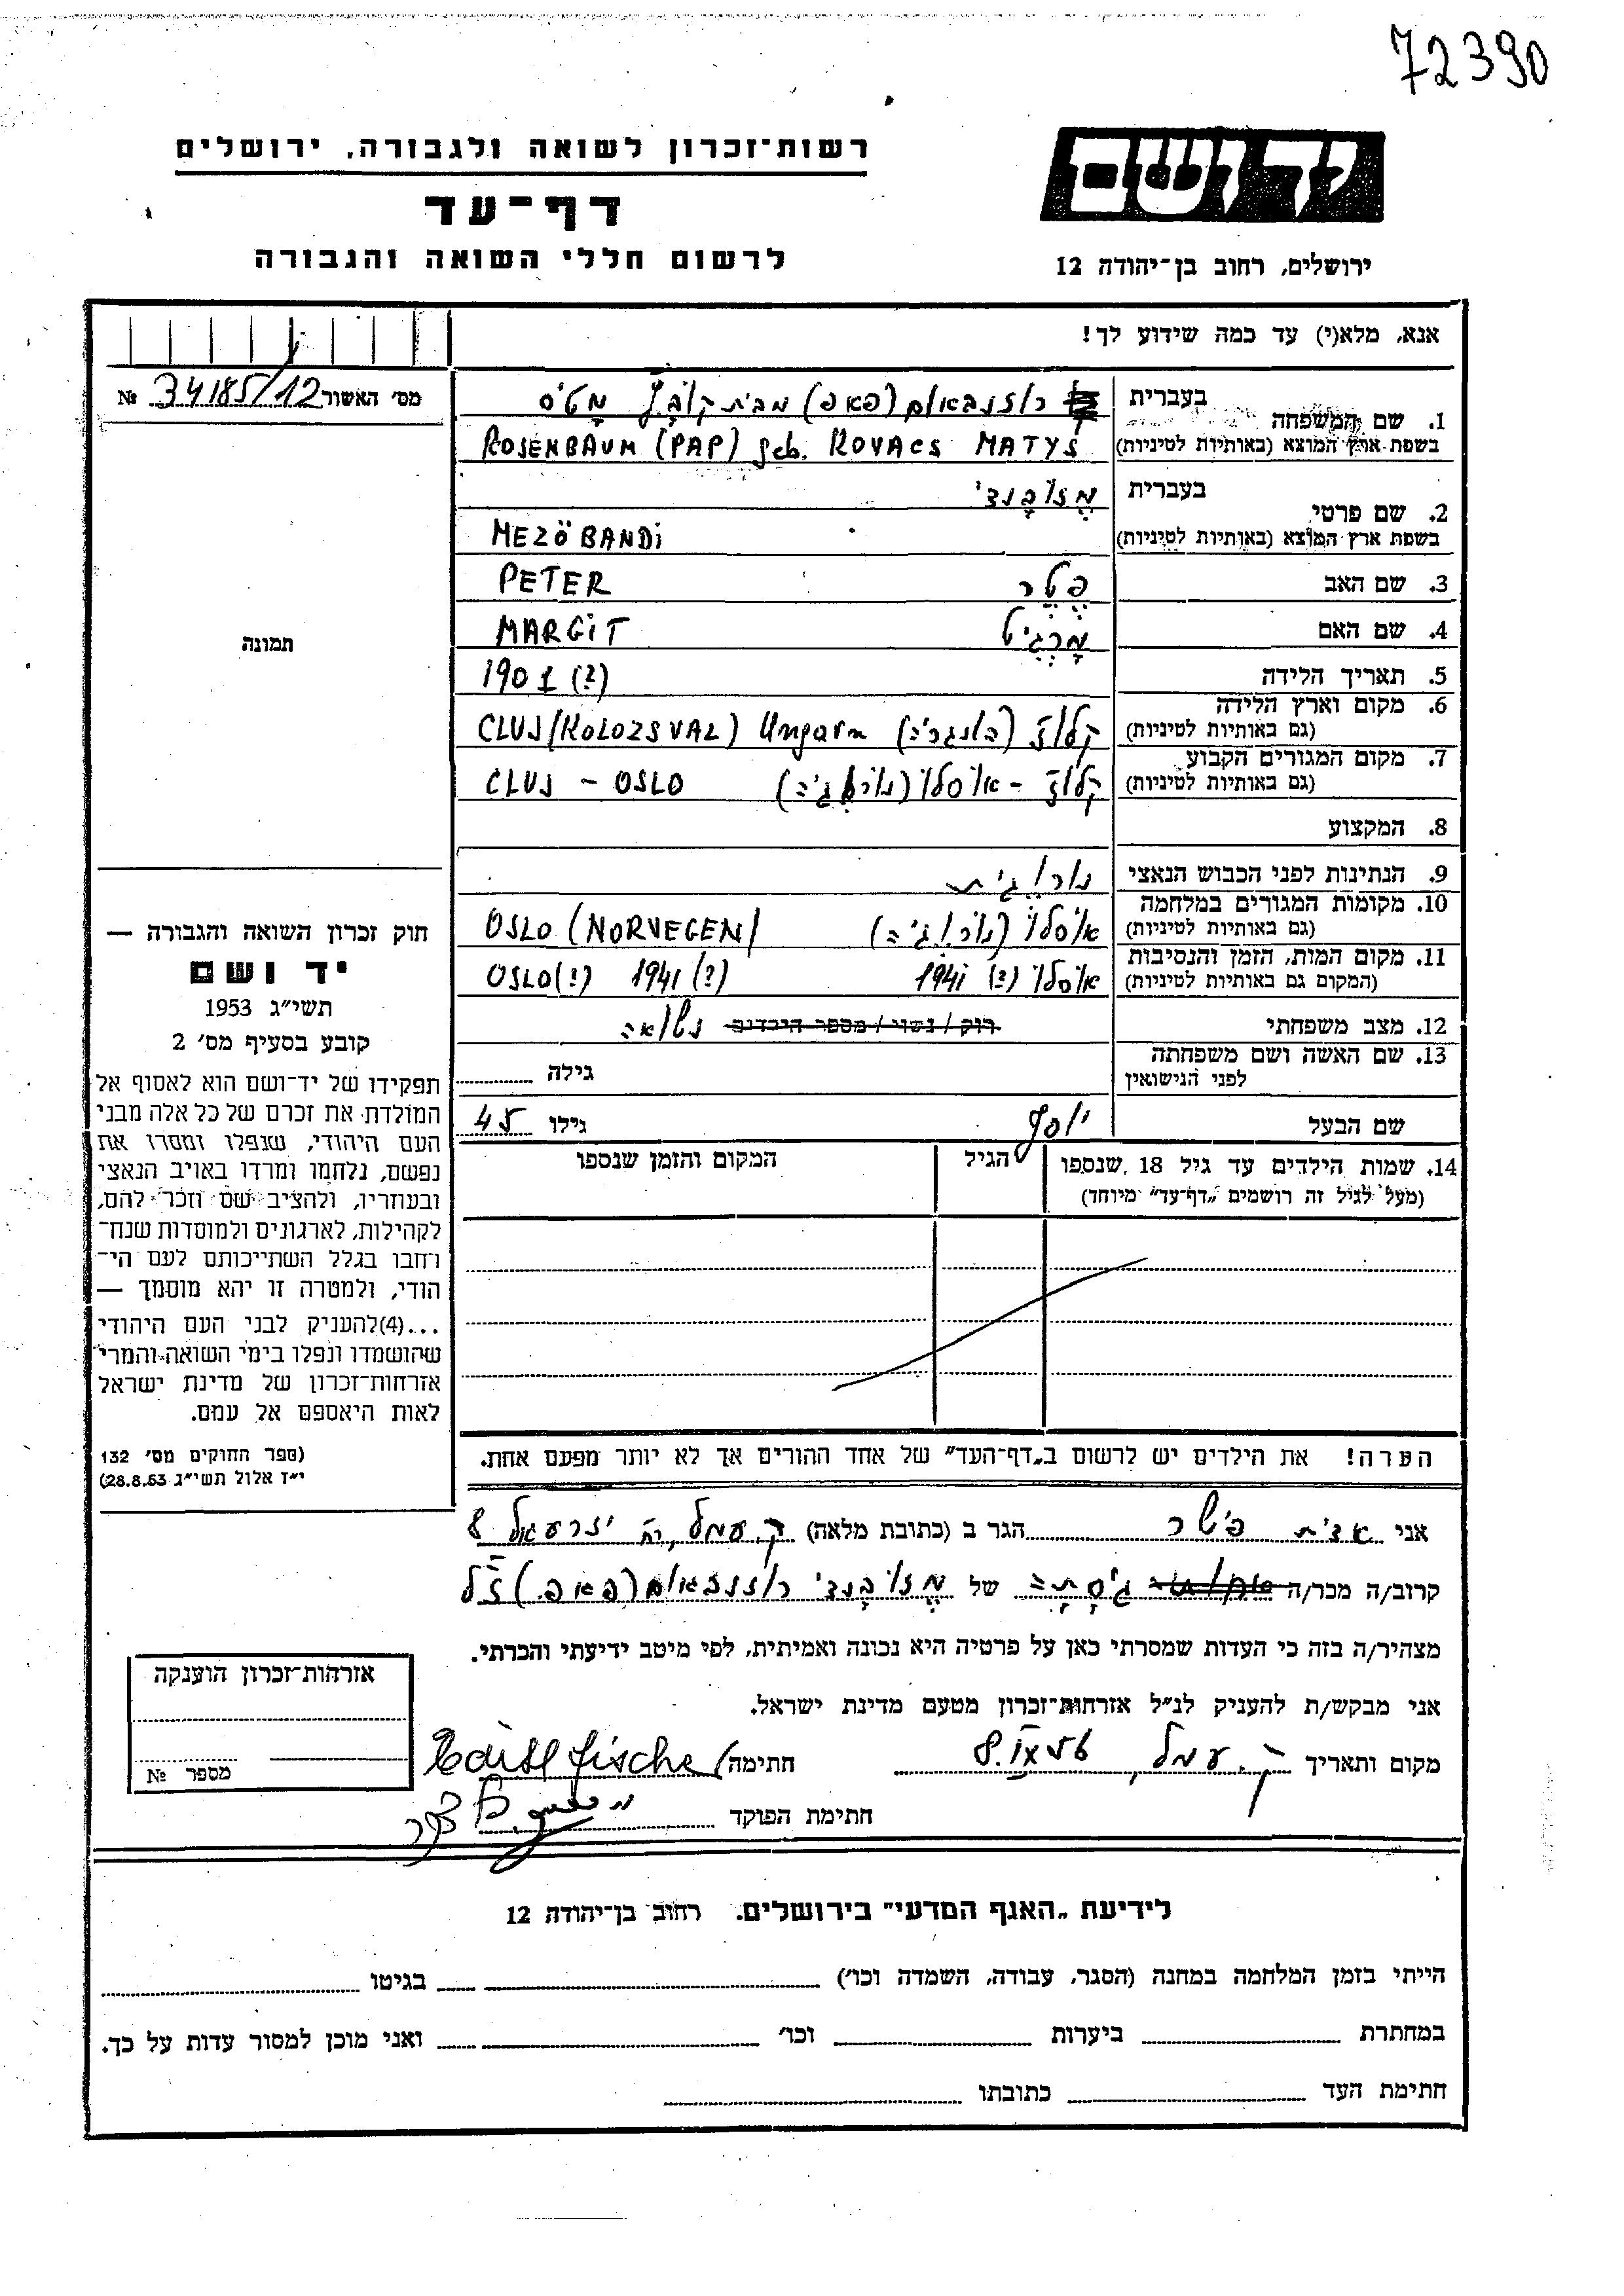 72390
רשות־זכרון לשואה ולגבורה, ירושלים
דף־עד
לרשום חללי השואה והגבורה
יד ושם
ירושלים, רחוב בן־יהודה 12
אנא, מלא(י) עד כמה שידוע לך!
מס׳ האשור 34185/12 №
1. שם המשפחה
בעברית רוזנבאום (פאפ) מבית קובץ מטיס
בשפת ארץ המוצא (באותיות לטיניות) ROSENBAUM (PAP) geb. KOVACS MATYS
2. שם פרטי
בעברית מזובנדי
בשפת ארץ המוצא (באותיות לטיניות) MEZÖBANDi
3. שם האב פטר PETER
4. שם האם מרגיט MARGiT
5. תאריך הלידה 1901 (?)
6. מקום וארץ הלידה
(גם באותיות לטיניות) קלוז׳ (הונגריה) CLUJ (KOLOZSVAL) Ungarn
7. מקום המגורים הקבוע
(גם באותיות לטיניות) קלוז׳ - אוסלו (נורבגיה) CLUJ - OSLO
8. המקצוע
9. הנתינות לפני הכבוש הנאצי נורוגית
10. מקומות המגורים במלחמה
(גם באותיות לטיניות) אוסלו (נורוגיה) OSLO (NORVEGEN)
11. מקום המות, הזמן והנסיבות
(המקום גם באותיות לטיניות) אוסלו (?) 1941 OSLO (?) 1941 (?)
12. מצב משפחתי רוק / נשוי / מספר הילדים נשואה
13. שם האשה ושם משפחתה
לפני הנישואין
גילה
שם הבעל יוסף גילו 45
14. שמות הילדים עד גיל 18 שנספו
(מעל לגיל זה רושמים „דף־עד״ מיוחד)
הגיל
המקום והזמן שנספו
הערה! את הילדים יש לרשום ב„דף־העד״ של אחד ההורים אך לא יותר מפעם אחת.
תמונה
חוק זכרון השואה והגבורה —
יד ושם
תשי״ג 1953
קובע בסעיף מס׳ 2
תפקידו של יד־ושם הוא לאסוף אל
המולדת את זכרם של כל אלה מבני
העם היהודי, שנפלו ומסרו את
נפשם, נלחמו ומרדו באויב הנאצי
ובעוזריו, ולהציב שם וזכר להם,
לקהילות, לארגונים ולמוסדות שנח־
רחבו בגלל השתייכותם לעם הי־
הודי, ולמטרה זו יהא מוסמך —
...(4)להעניק לבני העם היהודי
שהושמדו ונפלו בימי השואה והמרי
אזרחות־זכרון של מדינת ישראל
לאות היאספם אל עמם.
(ספר החוקים מס׳ 132
י״ז אלול תשי״ג 28.8.53)
אני אדית פישר הגר ב (כתובת מלאה) ק. עמל, רח׳ יזרעאל 8
קרוב/ה מכר/ה גיסתה של מזובנדי רוזנבאום (פאפ) ז״ל
מצהיר/ה בזה כי העדות שמסרתי כאן על פרטיה היא נכונה ואמיתית, לפי מיטב ידיעתי והכרתי.
אני מבקש/ת להעניק לנ״ל אזרחות־זכרון מטעם מדינת ישראל.
מקום ותאריך ק. עמל, 8.IX.56 חתימה
חתימת הפוקד
אזרחות־זכרון הוענקה
מספר №
לידיעת „האגף המדעי״ בירושלים. רחוב בן־יהודה 12
הייתי בזמן המלחמה במחנה (הסגר, עבודה, השמדה וכו׳) בגיטו
במחתרת ביערות וכו׳ ואני מוכן למסור עדות על כך.
חתימת העד כתובתו